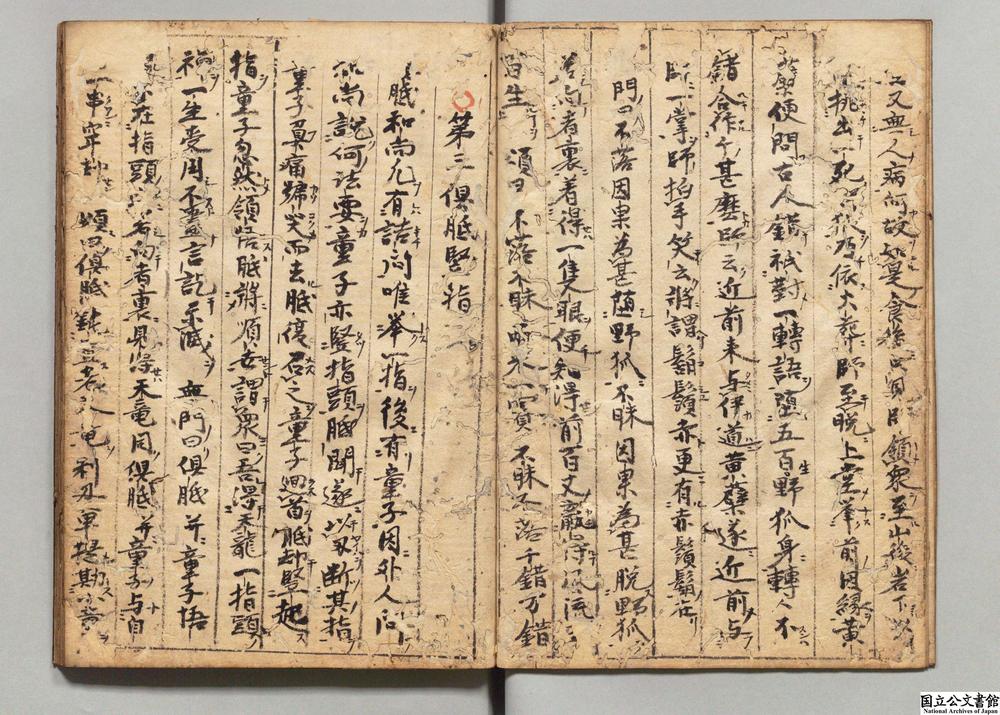 又無人病何故如是食後只見師領衆至山後岩下以
挑出一死野狐乃依火葬師至晚上堂挙前因縁黄
蘗便問古人錯祇對一轉語堕五百生野狐身轉〻不
錯合作ケ甚麽師云近前来与伊道黄蘗遂近前与
師一掌師拍手笑云將謂鬍鬚赤更有赤鬚鬍 無
門曰不落因果為甚堕野狐不昧因果為甚脱野狐
若向者裏着得一隻眼便知得前百丈贏得風流
百生 頌曰 不落不昧 両采一賽 不昧不落 千錯万錯
第三 倶胝竪指
胝和尚凢有詰問唯挙一指後有童子因外人问
和尚説何法要童子亦竪指頭胝聞遂以刄断其指
童子負痛號哭而去胝復召之童子廻首胝却竪起
指童子忽然領悟胝將順世謂衆曰吾得天龍一指頭
禅一生受用不盡言訖示滅 無門曰倶胝并童子悟
不在指頭上若向者裏見得天竜同倶胝并童子与自
一串穿却 頌曰倶胝鈍置老天竜利刄単提勘小童
国立公文書館
National Archives of Japan